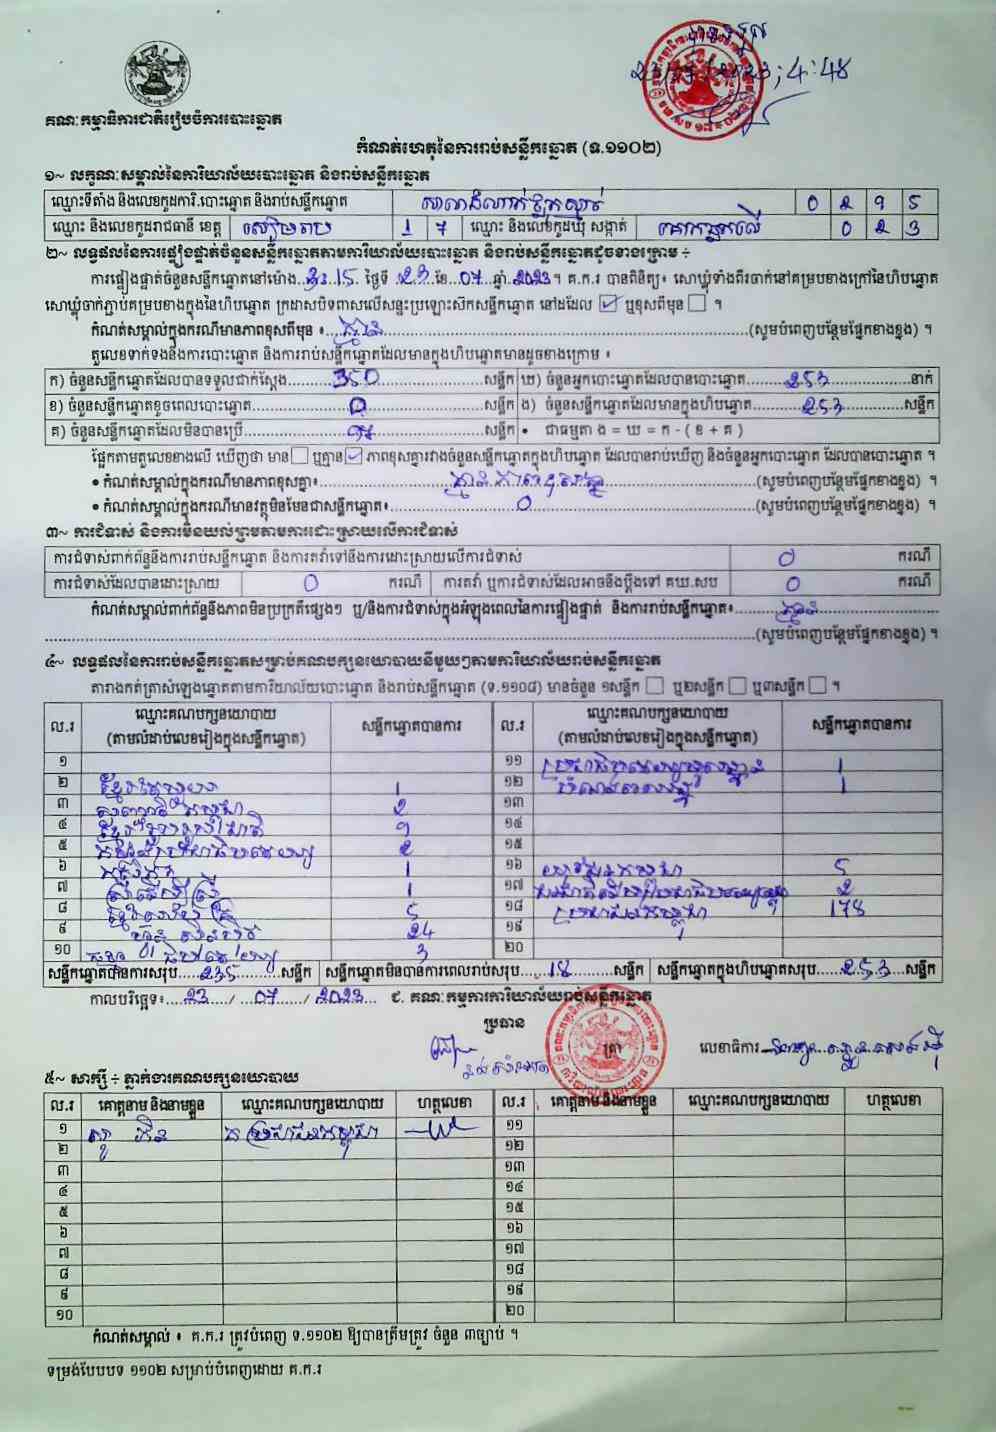 គណៈកម្មាធិការជាតិរៀបចំការបោះឆ្នោត
កំណត់ហេតុនៃការរាប់សន្លឹកឆ្នោត (ទ.១១០២)
១~ លក្ខណៈសម្គាល់នៃការិយាល័យបោះឆ្នោត និងរាប់សន្លឹកឆ្នោត
ឈ្មោះទីតាំង និងលេខកូដការិ.បោះឆ្នោត និងរាប់សន្លឹកឆ្នោត 0 2 9 5
ឈ្មោះ និងលេខកូដរាជធានី ខេត្ត សៀមរាប 1 7 ឈ្មោះ និងលេខកូដឃុំ សង្កាត់ 0 2 3
២~ លទ្ធផលនៃការផ្ទៀងផ្ទាត់ចំនួនសន្លឹកឆ្នោតតាមការិយាល័យបោះឆ្នោត និងរាប់សន្លឹកឆ្នោតដូចខាងក្រោម ÷
ការផ្ទៀងផ្ទាត់ចំនួនសន្លឹកឆ្នោតនៅម៉ោង 3:15 ថ្ងៃទី 23 ខែ 07 ឆ្នាំ 2023 ។ គ.ក.រ បានពិនិត្យ៖ សោឃ្លុំទាំងពីរចាក់នៅគម្របខាងក្រៅនៃហិបឆ្នោត
សោឃ្លុំចាក់ភ្ជាប់គម្របខាងក្នុងនៃហិបឆ្នោត ក្រដាសបិទពាសលើសន្ទះប្រឡោះសឹកសន្លឹកឆ្នោត នៅដដែល ☑ ឬខុសពីមុន ☐ ។
កំណត់សម្គាល់ក្នុងករណីមានភាពខុសពីមុន ៖ គ្មាន (សូមបំពេញបន្ថែមផ្នែកខាងខ្នង) ។
តួលេខទាក់ទងនឹងការបោះឆ្នោត និងការរាប់សន្លឹកឆ្នោតដែលមានក្នុងហិបឆ្នោតមានដូចខាងក្រោម ៖
ក) ចំនួនសន្លឹកឆ្នោតដែលបានទទួលជាក់ស្តែង 350 សន្លឹក ឃ) ចំនួនអ្នកបោះឆ្នោតដែលបានបោះឆ្នោត 253 នាក់
ខ) ចំនួនសន្លឹកឆ្នោតខូចពេលបោះឆ្នោត 0 សន្លឹក ង) ចំនួនសន្លឹកឆ្នោតដែលមានក្នុងហិបឆ្នោត 253 សន្លឹក
គ) ចំនួនសន្លឹកឆ្នោតដែលមិនបានប្រើ 97 សន្លឹក • ជាធម្មតា ង = ឃ = ក - ( ខ + គ )
ផ្អែកតាមតួលេខខាងលើ ឃើញថា មាន ☐ ឬគ្មាន ☑ ភាពខុសគ្នារវាងចំនួនសន្លឹកឆ្នោតក្នុងហិបឆ្នោត ដែលបានរាប់ឃើញ និងចំនួនអ្នកបោះឆ្នោត ដែលបានបោះឆ្នោត ។
• កំណត់សម្គាល់ក្នុងករណីមានភាពខុសគ្នា៖ គ្មានភាពខុសគ្នា (សូមបំពេញបន្ថែមផ្នែកខាងខ្នង) ។
• កំណត់សម្គាល់ក្នុងករណីមានវត្ថុមិនមែនជាសន្លឹកឆ្នោត៖ 0 (សូមបំពេញបន្ថែមផ្នែកខាងខ្នង) ។
៣~ ការជំទាស់ និងការមិនយល់ព្រមតាមការដោះស្រាយលើការជំទាស់
ការជំទាស់ពាក់ព័ន្ធនឹងការរាប់សន្លឹកឆ្នោត និងការតវ៉ាទៅនឹងការដោះស្រាយលើការជំទាស់ 0 ករណី
ការជំទាស់ដែលបានដោះស្រាយ 0 ករណី ការតវ៉ា ឬការជំទាស់ដែលអាចនឹងប្តឹងទៅ គឃ.សប 0 ករណី
កំណត់សម្គាល់ពាក់ព័ន្ធនឹងភាពមិនប្រក្រតីផ្សេងៗ ឬ/និងការជំទាស់ក្នុងអំឡុងពេលនៃការផ្ទៀងផ្ទាត់ និងការរាប់សន្លឹកឆ្នោត៖ គ្មាន
(សូមបំពេញបន្ថែមផ្នែកខាងខ្នង) ។
៤~ លទ្ធផលនៃការរាប់សន្លឹកឆ្នោតសម្រាប់គណបក្សនយោបាយនីមួយៗតាមការិយាល័យរាប់សន្លឹកឆ្នោត
តារាងកត់ត្រាសំឡេងឆ្នោតតាមការិយាល័យបោះឆ្នោត និងរាប់សន្លឹកឆ្នោត (ទ.១១០៨) មានចំនួន ១សន្លឹក ☐ ឬ២សន្លឹក ☐ ឬ៣សន្លឹក ☐ ។
ល.រ ឈ្មោះគណបក្សនយោបាយ (តាមលំដាប់លេខរៀងក្នុងសន្លឹកឆ្នោត) សន្លឹកឆ្នោតបានការ ល.រ ឈ្មោះគណបក្សនយោបាយ (តាមលំដាប់លេខរៀងក្នុងសន្លឹកឆ្នោត) សន្លឹកឆ្នោតបានការ
១ ១១ 1
២ 1 ១២ 1
៣ 2 ១៣
៤ ១៤
៥ 2 ១៥
៦ 1 ១៦ 5
៧ 1 ១៧ 2
៨ 5 ១៨ ប្រជាជនកម្ពុជា 178
៩ ហ៊្វុនស៊ិនប៉ិច 24 ១៩
១០ 3 ២០
សន្លឹកឆ្នោតបានការសរុប 235 សន្លឹក សន្លឹកឆ្នោតមិនបានការពេលរាប់សរុប 18 សន្លឹក សន្លឹកឆ្នោតក្នុងហិបឆ្នោតសរុប 253 សន្លឹក
កាលបរិច្ឆេទ៖ 23 / 07 / 2023 ជ. គណៈកម្មការការិយាល័យរាប់សន្លឹកឆ្នោត
ប្រធាន
ត្រា
លេខាធិការ
៥~ សាក្សី ÷ ភ្នាក់ងារគណបក្សនយោបាយ
ល.រ គោត្តនាម និងនាមខ្លួន ឈ្មោះគណបក្សនយោបាយ ហត្ថលេខា ល.រ គោត្តនាម និងនាមខ្លួន ឈ្មោះគណបក្សនយោបាយ ហត្ថលេខា
១ គ ប្រជាជនកម្ពុជា ១១
២ ១២
៣ ១៣
៤ ១៤
៥ ១៥
៦ ១៦
៧ ១៧
៨ ១៨
៩ ១៩
១០ ២០
កំណត់សម្គាល់ ៖ គ.ក.រ ត្រូវបំពេញ ទ.១១០២ ឱ្យបានត្រឹមត្រូវ ចំនួន ៣ច្បាប់ ។
ទម្រង់បែបបទ ១១០២ សម្រាប់បំពេញដោយ គ.ក.រ